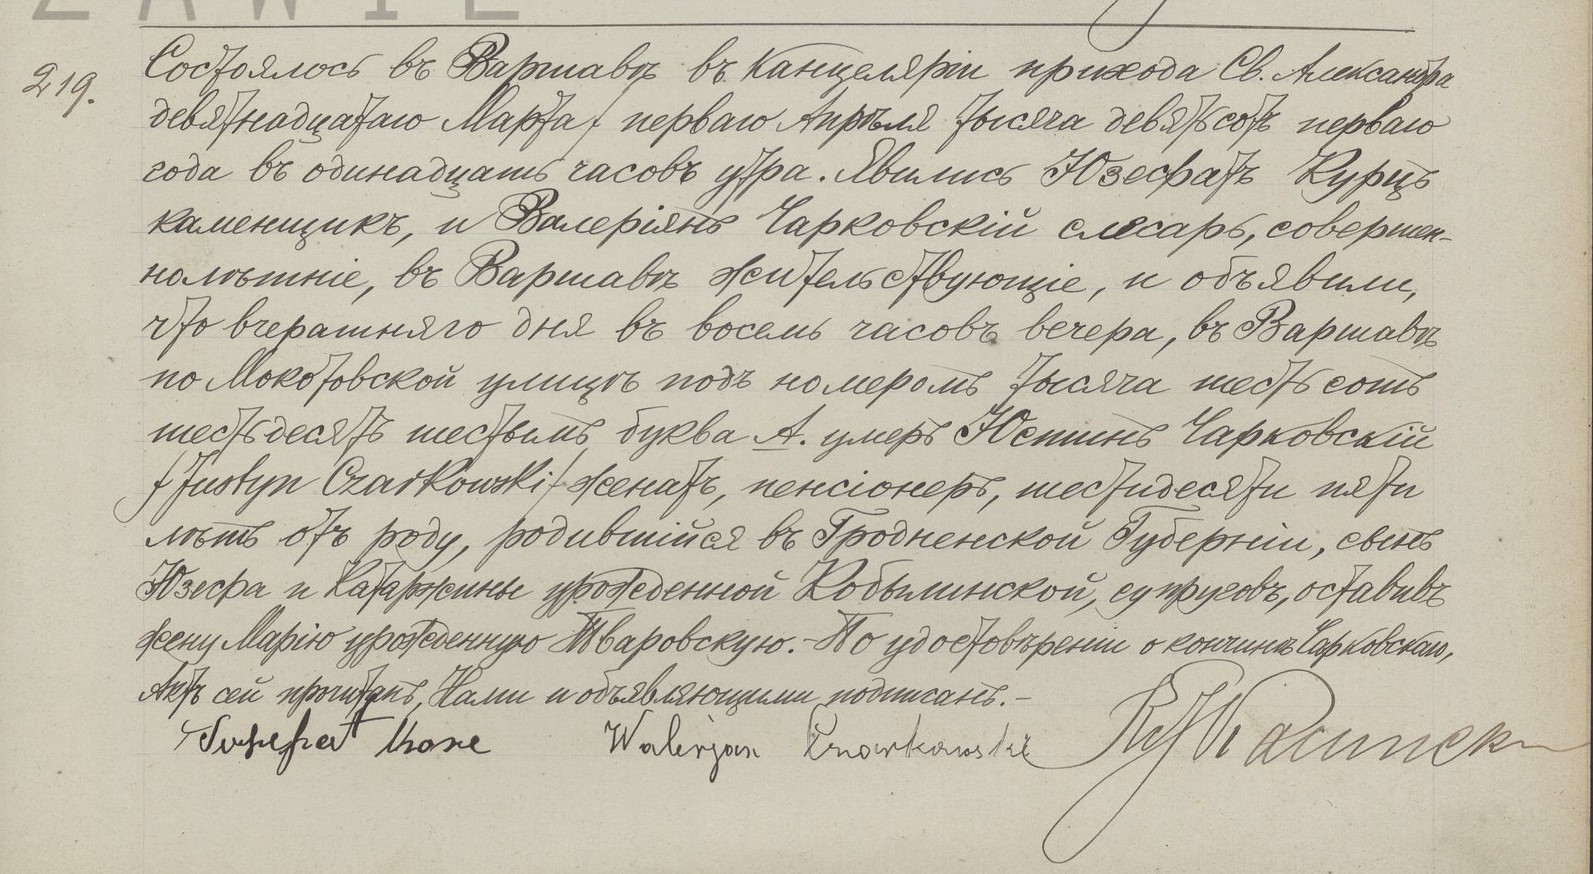 ZAWIE
219.
Состоялось въ Варшавѣ въ Канцеляріи прихода Св. Александра
девятнадцатаго Марта / перваго Апрѣля тысяча девятьсотъ перваго
года въ одинадцать часовъ утра. Явились Юзефатъ Курцъ
каменщикъ, и Валеріянъ Чарковскій слесарь, совершен-
нолѣтніе, въ Варшавѣ жительствующіе, и объявили,
что вчерашняго дня въ восемь часовъ вечера, въ Варшавѣ
по Мокотовской улицѣ подъ номеромъ тысяча шестьсотъ
шестьдесятъ шестымъ буква А. умеръ Юстинъ Чарковскій
/Justyn Czarkowski/ женатъ, пенсіонеръ, шестидесяти пяти
лѣтъ отъ роду, родившійся въ Гродненской Губерніи, сынъ
Юзефа и Катаржины урожденной Кобылинской, супруговъ, оставивъ
жену Марію урожденную Тваровскую. - По удостовѣреніи о кончинѣ Чарковскаго,
Актъ сей прочитанъ, Нами и объявляющими подписанъ. -
Walerjan Czarkowski